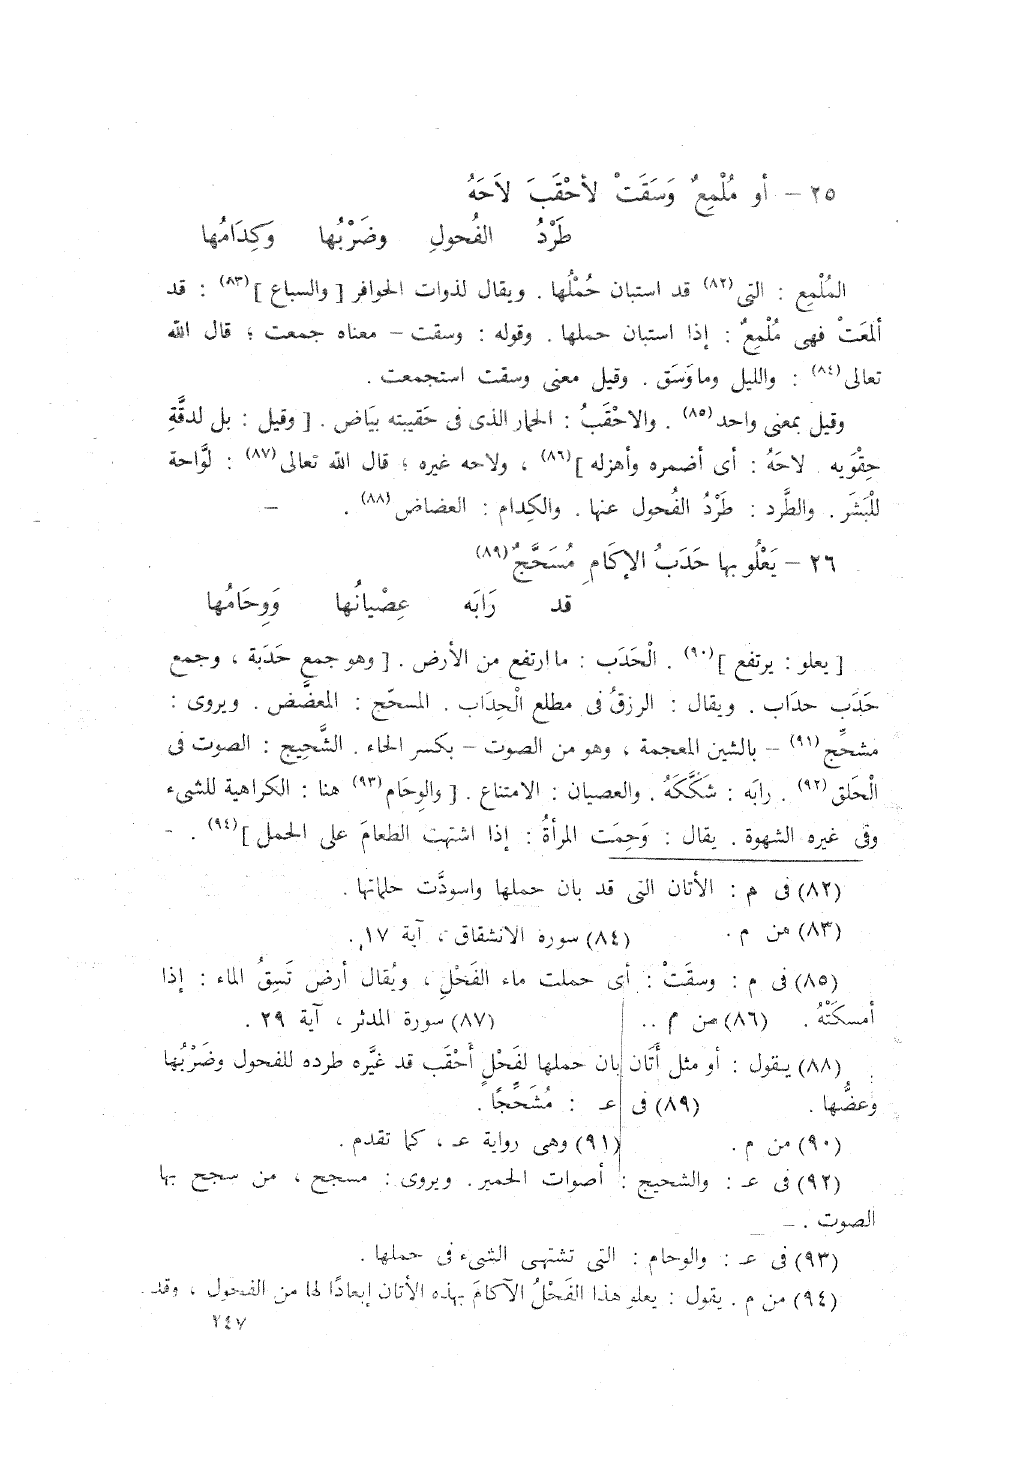 ٢٥ – أو مُلْمِعٌ وَسَقَتْ لأحْقَبَ لاَحَهُ
طَرْدُ الفُحولِ وضَرْبُها وَكِدَامُها
المُلْمِع : التى(٨٢) قد استبان حُمْلُها . ويقال لذوات الحوافر [ والسباع ](٨٣) : قد
ألمعَتْ فهى مُلْمِعٌ : إذا استبان حملها . وقوله : وسقت – معناه جمعت ؛ قال الله
تعالى(٨٤) : والليل وما وَسَق . وقيل معنى وسقت استجمعت .
وقيل بمعنى واحد(٨٥) . والاحْقَبُ : الحمار الذى فى حَقيبته بيَاض . [ وقيل : بل لدقَّةِ
حِقْوَيه . لاحَهُ : أى أضمره وأهزله ](٨٦) ، ولاحه غيره ؛ قال الله تعالى(٨٧) : لوَّاحة
للْبَشَر . والطَّرد : طَرْدُ الفُحول عنها . والكِدام : العضاض(٨٨) .
٢٦ – يَعْلُو بها حَدَبُ الإكَامِ مُسَحَّجٌ(٨٩)
قد رَابَه عِصْيانُها وَوِحَامُها
[ يعلو : يرتفع ](٩٠) . الْحَدَب : ما ارتفع من الأرض . [ وهو جمع حَدَبة ، وجمع
حَدَب حدَاب . ويقال : الرزقُ فى مطلع الْحِدَاب . المسحّج : المعضَّض . ويروى :
مشحِّج(٩١) – بالشين المعجمة ، وهو من الصوت – بكسر الحاء . الشَّحِيج : الصوت فى
الْحَلق(٩٢) . رابَه : شَكَّكَهُ . والعصيان : الامتناع . [ والوِحَام(٩٣) هنا : الكراهية للشىء
وفى غيره الشهوة . يقال : وَحِمَت المرأةُ : إذا اشتهت الطعامَ على الحمل ](٩٤) .
(٨٢) فى م : الأتان التى قد بان حملها واسودَّت حلماتها .
(٨٣) من م . (٨٤) سورة الانشقاق ، آية ١٧ .
(٨٥) فى م : وسقَتْ : أى حملت ماء الفَحْلِ ، ويُقال أرض تَسِقُ الماء : إذا
أمسكَتْهُ . (٨٦) من م .. (٨٧) سورة المدثر ، آية ٢٩ .
(٨٨) يقول : أو مثل أَتَان بان حملها لفَحْلٍ أَحْقَب قد غيَّره طرده للفحول وضَرْبُها
وعضُّها . (٨٩) فى عـ : مُشَحِّجًا .
(٩٠) من م . (٩١) وهى رواية عـ ، كما تقدم .
(٩٢) فى عـ : والشحيج : أصوات الحمير . ويروى : مسجح ، من سجح بها
الصوت .
(٩٣) فى عـ : والوحام : التى تشتهى الشىء فى حملها .
(٩٤) من م . يقول : يعلو هذا الفَحْلُ الآكامَ بهذه الأتان إبعادًا لها من الفحول ، وقد
٢٤٧